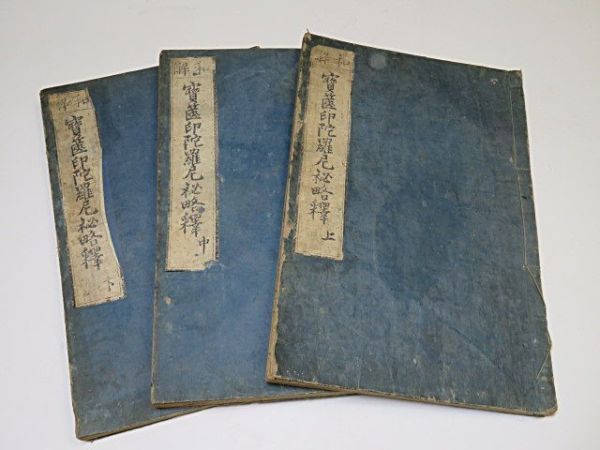 和解
寶篋印陀羅尼秘略釋 上
和解
寶篋印陀羅尼秘略釋 中
和解
寶篋印陀羅尼秘略釋 下